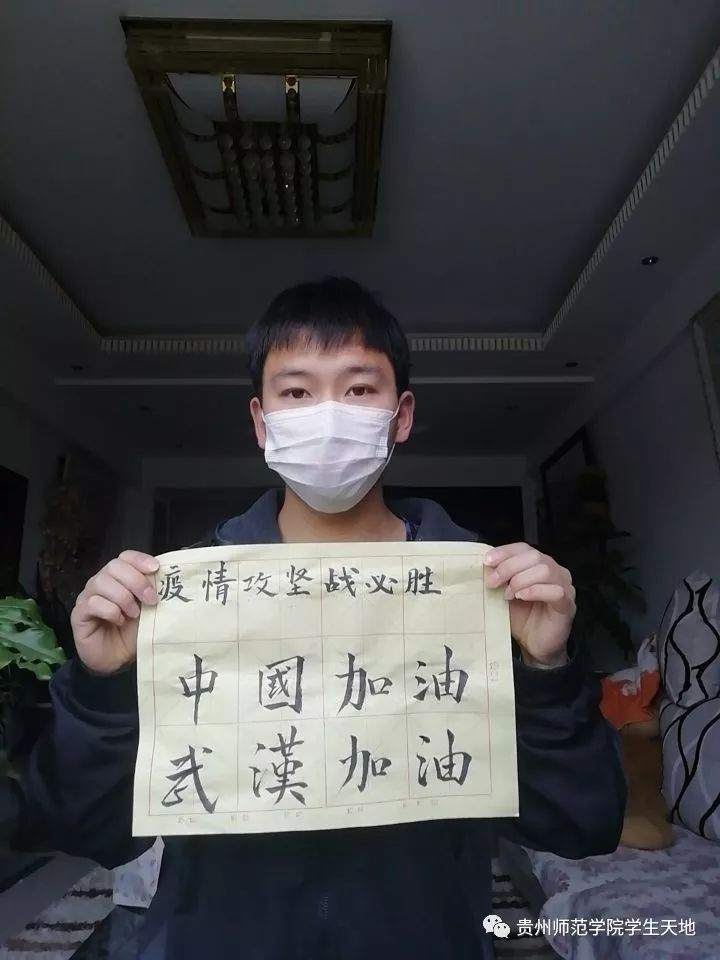 疫情攻坚战必胜
中國加油
武漢加油
贵州师范学院学生天地